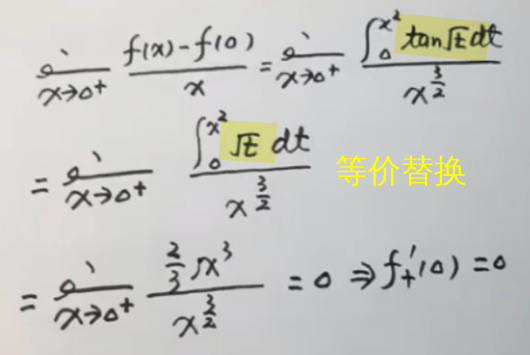 lim x→0⁺ (f(x)-f(0))/x = lim x→0⁺ (∫₀^{x²} tan√t dt)/x^{3/2}
= lim x→0⁺ (∫₀^{x²} √t dt)/x^{3/2} 等价替换
= lim x→0⁺ (2/3 x³)/x^{3/2} = 0 ⇒ f₊'(0) = 0